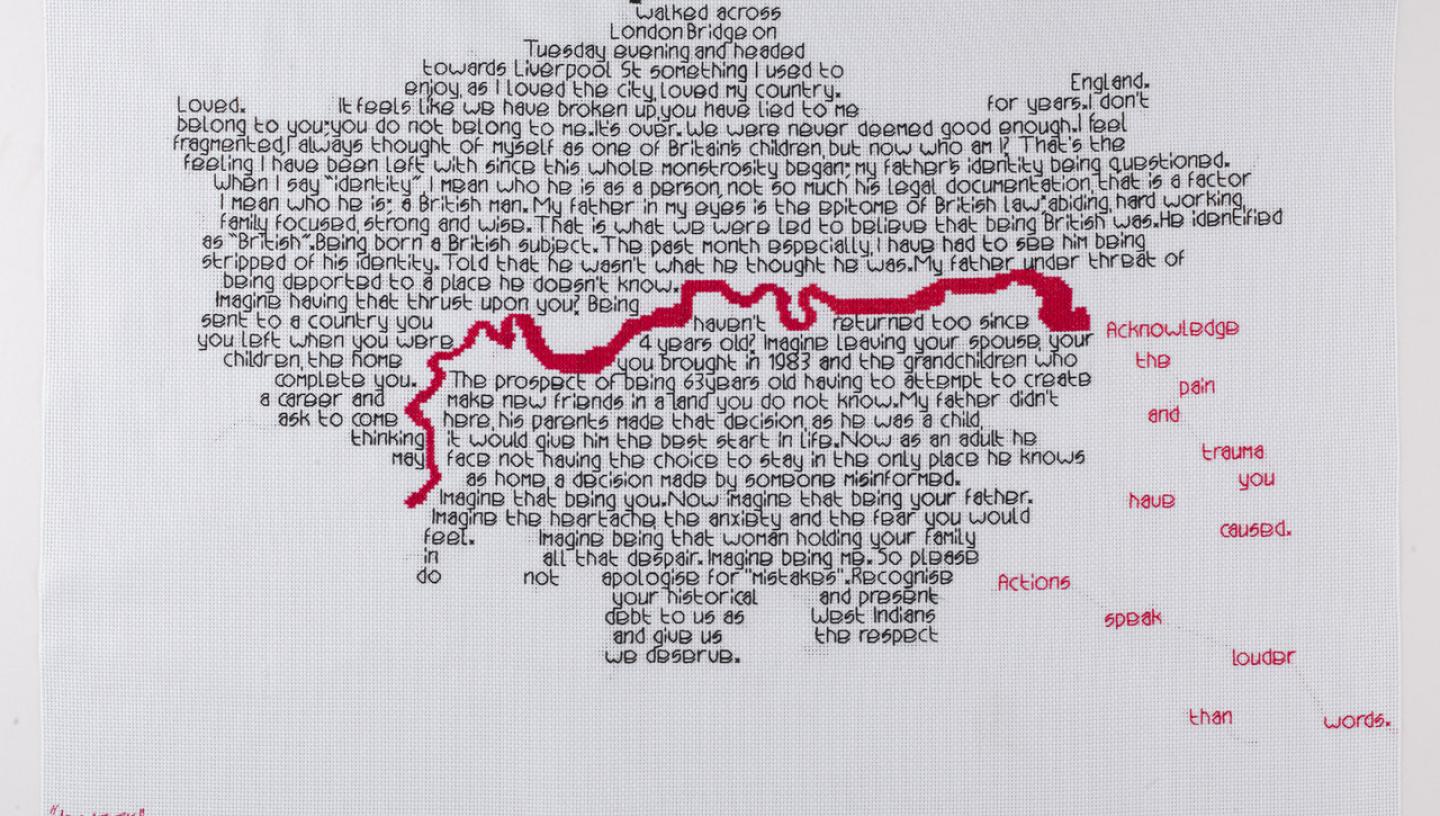 walked across
London Bridge on
Tuesday evening and headed
towards Liverpool St something I used to
enjoy, as I loved the city, loved my country. England.
Loved. It feels like we have broken up, you have lied to me for years. I don't
belong to you; you do not belong to me. It's over. We were never deemed good enough. I feel
fragmented, I always thought of myself as one of Britain's children, but now who am I? That's the
feeling I have been left with since this whole monstrosity began; my father's identity being questioned.
When I say "identity", I mean who he is as a person, not so much his legal documentation, that is a factor
I mean who he is; a British man. My father in my eyes is the epitome of British law-abiding, hard working,
family focused, strong and wise. That is what we were led to believe that being British was. He identified
as "British". Being born a British subject. The past month especially, I have had to see him being
stripped of his identity. Told that he wasn't what he thought he was. My father under threat of
being deported to a place he doesn't know.
Imagine having that thrust upon you? Being
sent to a country you haven't returned too since
you left when you were 4 years old? Imagine leaving your spouse, your
children, the home you brought in 1983 and the grandchildren who
complete you. The prospect of being 63years old having to attempt to create
a career and make new friends in a land you do not know. My father didn't
ask to come here, his parents made that decision, as he was a child,
thinking it would give him the best start in life. Now as an adult he
may face not having the choice to stay in the only place he knows
as home, a decision made by someone misinformed.
Imagine that being you. Now imagine that being your father.
Imagine the heartache, the anxiety and the fear you would
feel. Imagine being that woman holding your family
in all that despair. Imagine being me. So please
do not apologise for "mistakes". Recognise
your historical and present
debt to us as West Indians
and give us the respect
we deserve.
Acknowledge
the
pain
and
trauma
you
have
caused.
Actions
speak
louder
than words.